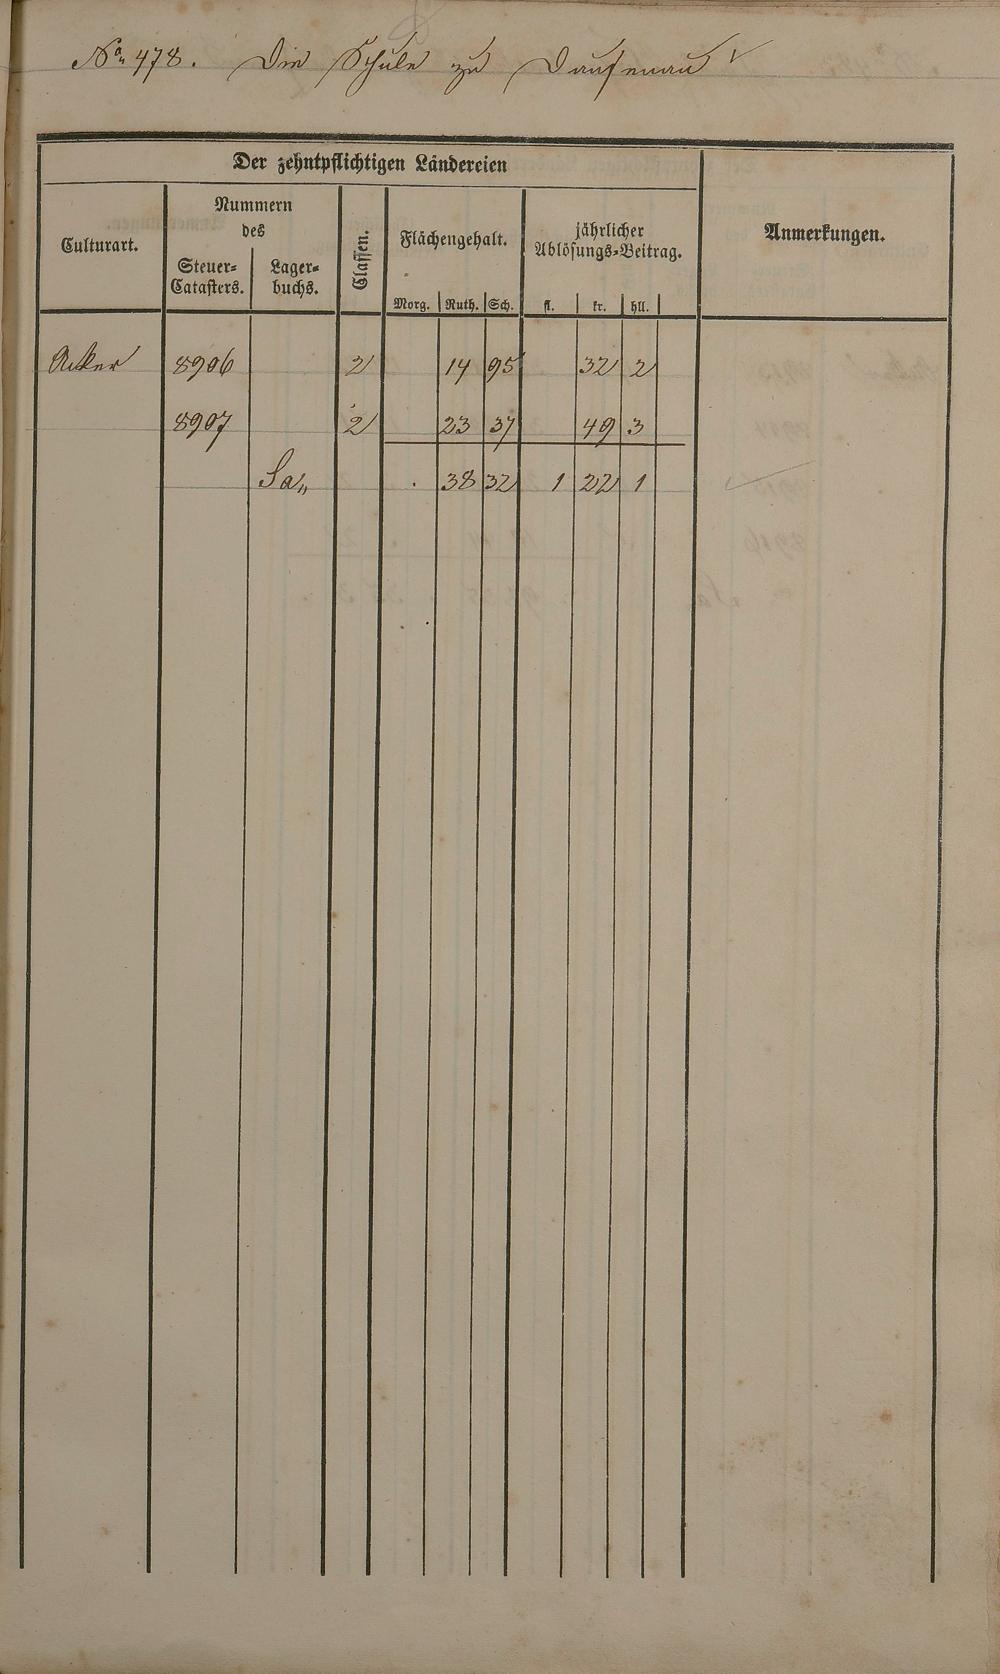 No. 478. Die Schule zu Dausenau
Der zehntpflichtigen Ländereien
Culturart.
Nummern
des
Steuer-
Catasters.
Lager-
buchs.
Classen.
Flächengehalt.
Morg. Ruth. Sch.
jährlicher
Ablösungs-Beitrag.
fl. kr. hll.
Anmerkungen.
Acker 8906 2 14 95 32 2
8907 2 23 37 49 3
Sa. . 38 32 1 22 1